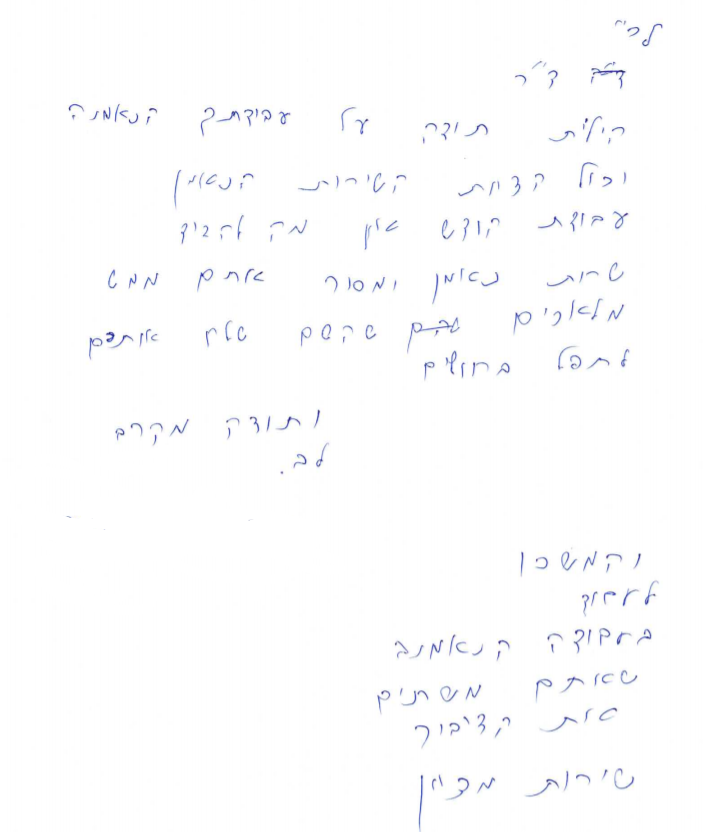 לכ"
ד"ר
תודה על עבודתך הנאמנה
השירות הנאמן
עבודת קודש אין מה להגיד
שרות נאמן ומסור אתם ממש
מלאכים שהשם שלח אותכם
לתפל בחולים
ותודה מקרב
לב.
והמשכו
לעבוד
בעבודה הנאמנה
שאתם משתים
את הציבור
שירות מצויין